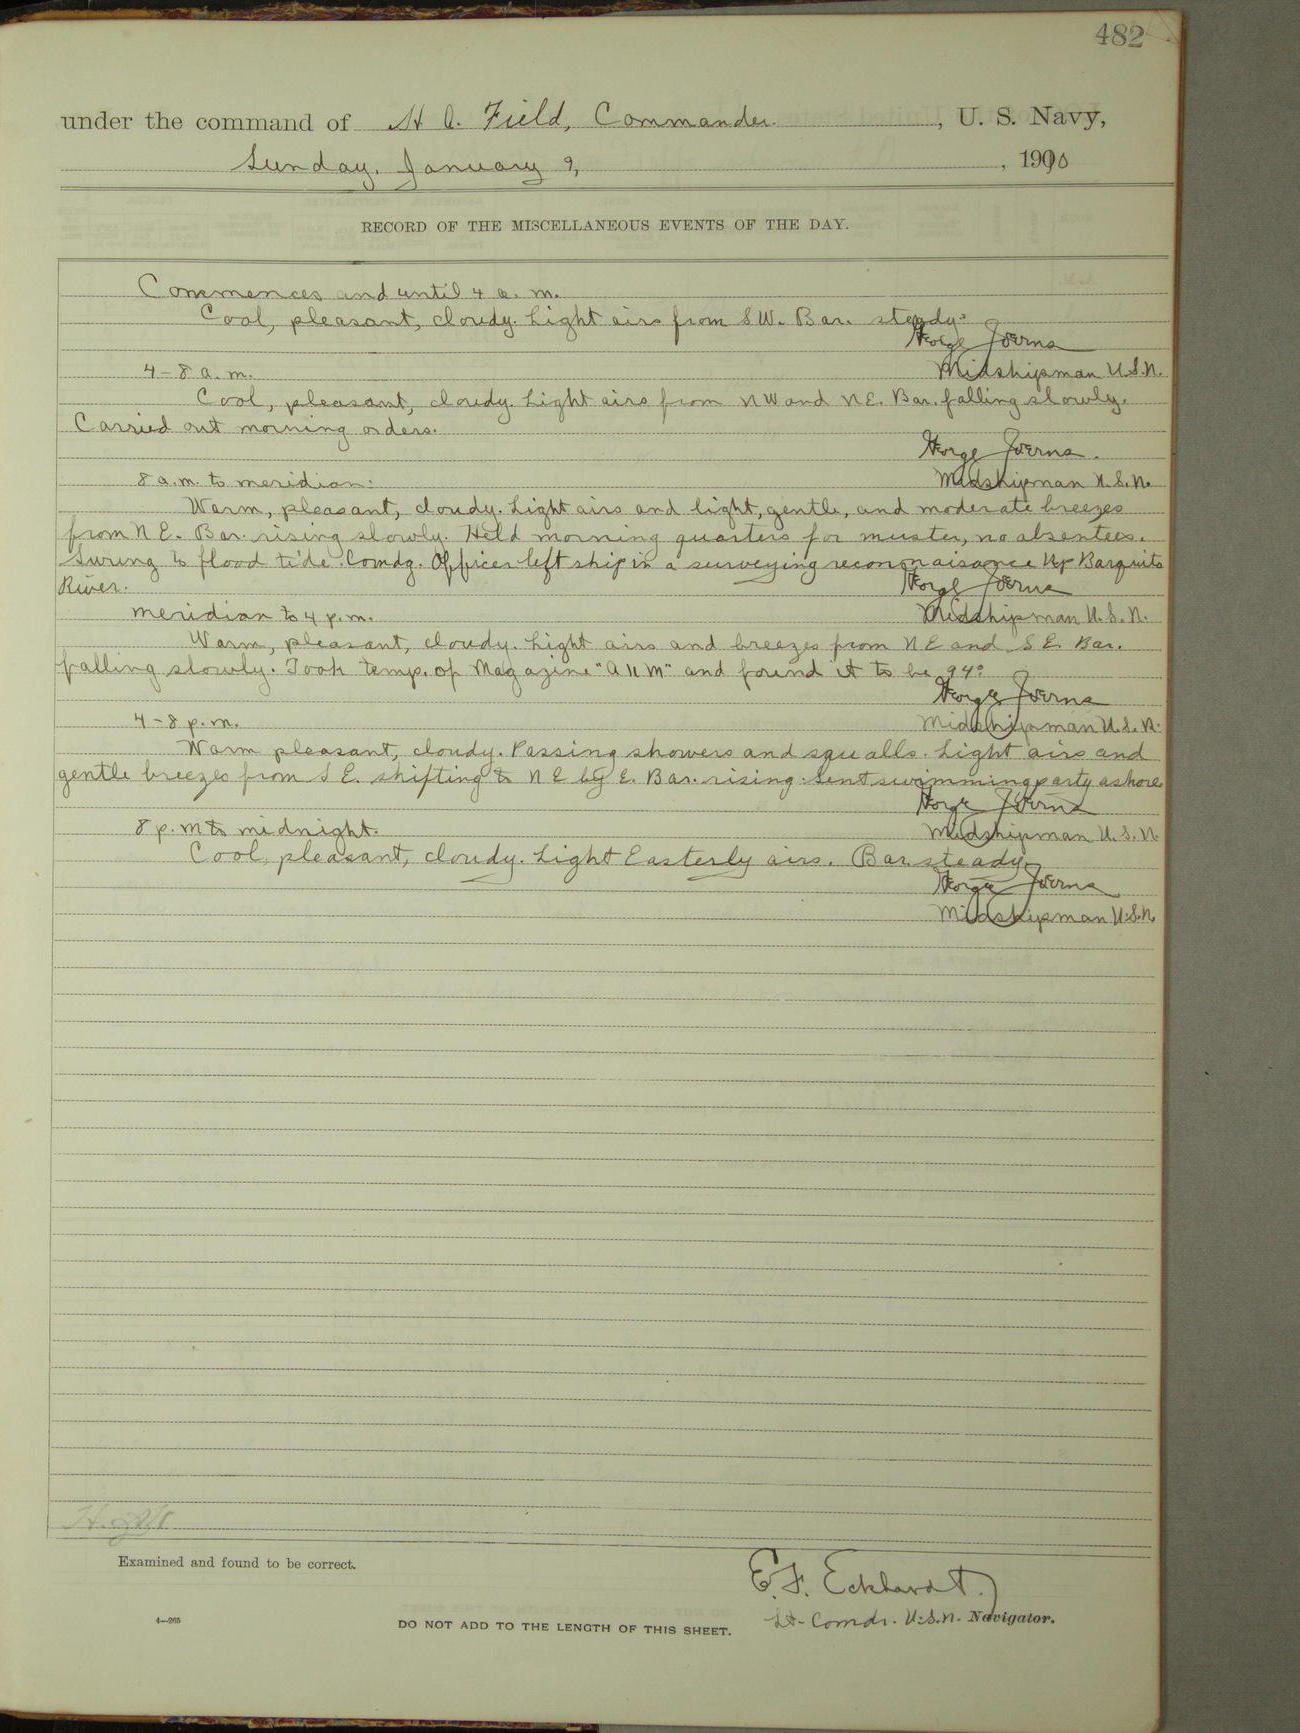 482
under the command of H. A. Field, Commander, U. S. Navy,
Sunday, January 9, 1910
RECORD OF THE MISCELLANEOUS EVENTS OF THE DAY.
Commences and until 4 a. m.
Cool, pleasant, cloudy. Light airs from SW. Bar. steady.
George Joerns
4-8 a.m. Midshipman U.S.N.
Cool, pleasant, cloudy. Light airs from NW and NE. Bar. falling slowly.
Carried out morning orders.
George Joerns.
8 a.m. to meridian: Midshipman U.S.N.
Warm, pleasant, cloudy. Light airs and light, gentle, and moderate breezes
from NE. Bar. rising slowly. Held morning quarters for muster, no absentees.
Swung to flood tide. Comdg. Officer left ship in a surveying reconnaisance up
River. George Joerns
meridian to 4 p.m. Midshipman U.S.N.
Warm, pleasant, cloudy. Light airs and breezes from NE and SE. Bar.
falling slowly. Took temp. of Magazine and found it to be 94°
George Joerns
4-8 p.m. Midshipman U.S.N.
Warm pleasant, cloudy. Passing showers and squalls. Light airs and
gentle breezes from SE. shifting to NE by E. Bar. rising. Sent swimming party ashore
George Joerns
8 p.m to midnight. Midshipman U.S.N.
Cool, pleasant, cloudy. Light Easterly airs. Bar. steady.
George Joerns
Midshipman U.S.N.
Examined and found to be correct.
E. F. Eckhardt
Lt-Comdr. U.S.N. Navigator.
4-265
DO NOT ADD TO THE LENGTH OF THIS SHEET.